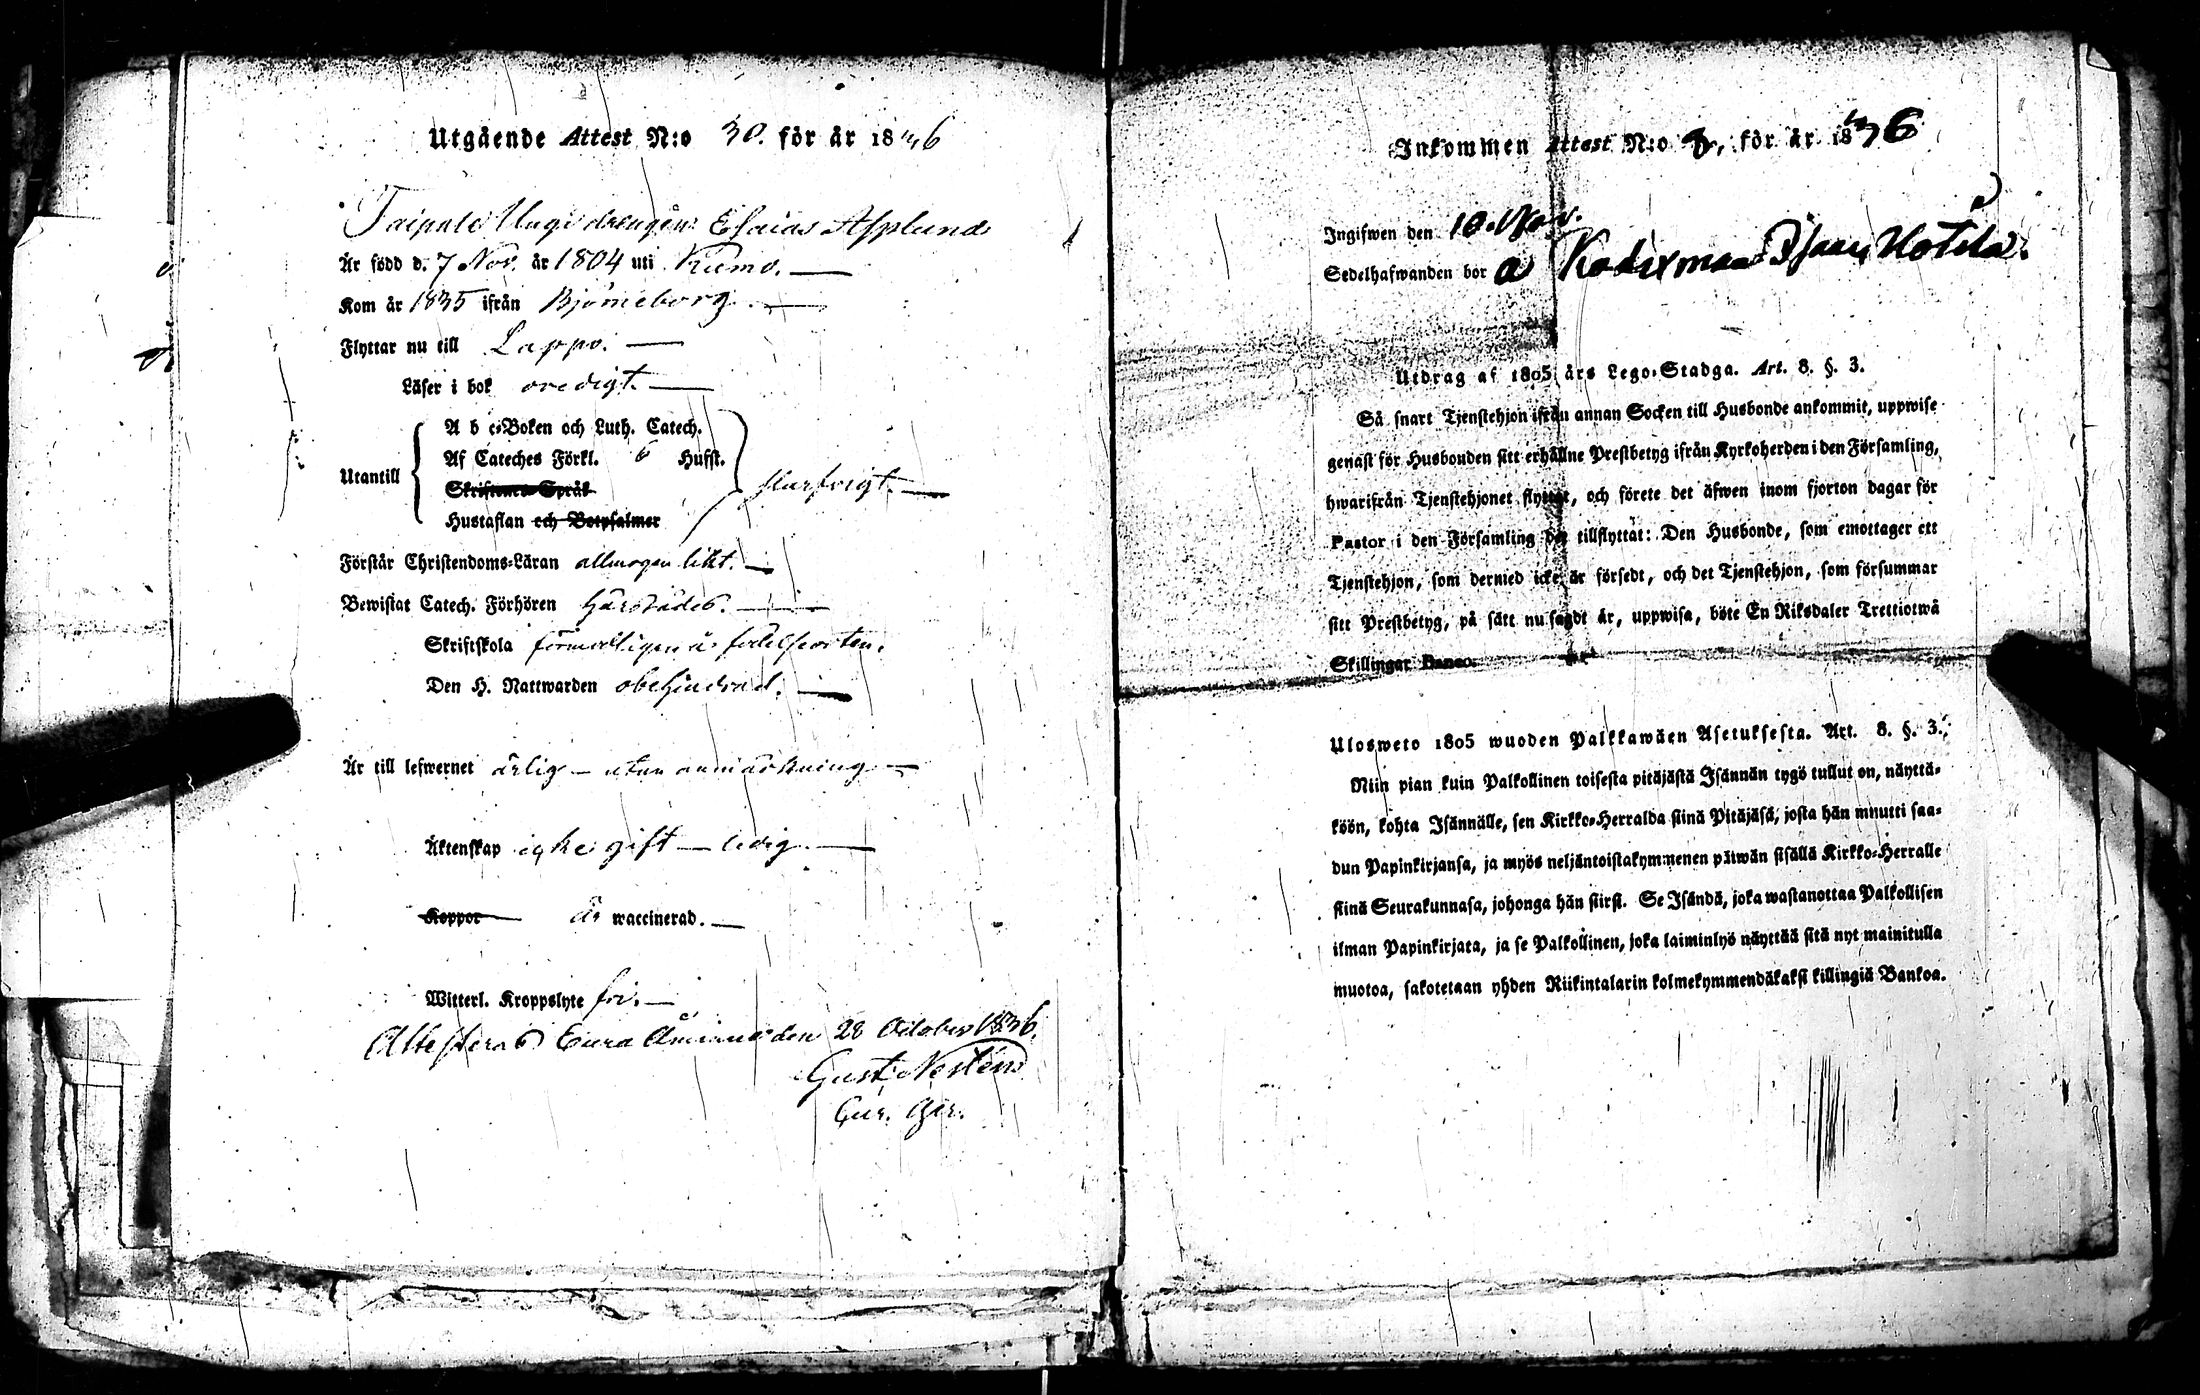 Utgående Attest N:o 30. för år 1836
Drengen Esaias Asplund
Är född d. 7 Nov. år 1804 uti Kumo.
Kom år 1835 ifrån Björneborg.
Flyttar nu till Lappo.
Läser i bok oredigt.
A b c-Boken och Luth. Catech.
Af Cateches Förkl. 6 Hufst.
Utantill
Skriftenes Språk
Hustaflan och Botpsalmer
Förstår Christendoms-Läran allmogen likt.
Bewistat Catech. Förhören härstädes.
Skriftskola förmodligen å födelseorten.
Den H. Nattwarden obehindrad.
Är till lefwernet ärlig – utan anmärkning
Äktenskap icke gift – ledig.
Koppor är waccinerad.
Witterl. Kroppslyte fri.
Attesteras Eura Åminne den 28 October 1836.
Gust.
Inkommen Attest N:o för år 1836
Ingifwen den 10. Nov.
Sedelhafwanden bor å
Utdrag af 1805 års Lego-Stadga. Art. 8. §. 3.
Så snart Tjenstehjon ifrån annan Socken till Husbonde ankommit, uppwise
genast för Husbonden sitt erhållne Prestbetyg ifrån Kyrkoherden i den Församling,
hwarifrån Tjenstehjonet flyttat, och förete det äfwen inom fjorton dagar för
Pastor i den Församling det tillflyttat: Den Husbonde, som emottager ett
Tjenstehjon, som dermed icke är försedt, och det Tjenstehjon, som försummar
sitt Prestbetyg, på sätt nu sagdt är, uppwisa, böte En Riksdaler Trettiotwå
Skillingar Banco.
Ulosweto 1805 wuoden Palkkawäen Asetuksesta. Art. 8. §. 3.
Niin pian kuin Palkollinen toisesta pitäjästä Isännän tygö tullut on, näyttä-
köön, kohta Isännälle, sen Kirkko-Herralda siinä Pitäjäsä, josta hän muutti saa-
dun Papinkirjansa, ja myös neljäntoistakymmenen päiwän sisällä Kirkko-Herralle
siinä Seurakunnasa, johonga hän siirsi. Se Isändä, joka wastanottaa Palkollisen
ilman Papinkirjata, ja se Palkollinen, joka laiminlyö näyttää sitä nyt mainitulla
muotoa, sakotetaan yhden Riikintalarin kolmekymmendäkaksi killingiä Bankoa.